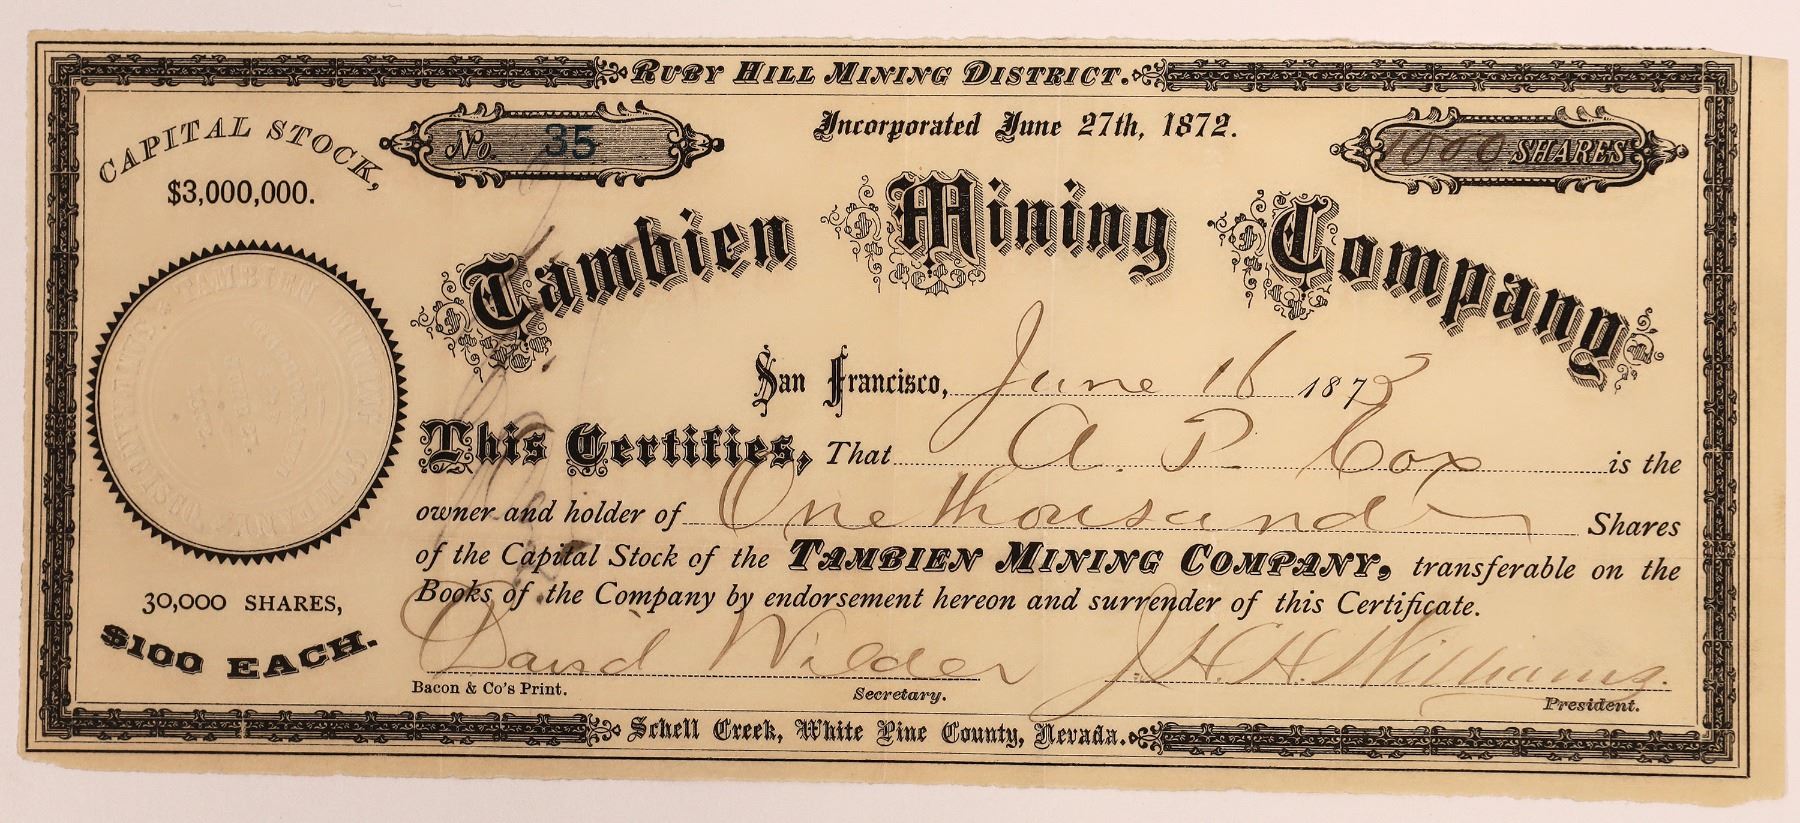 RUBY HILL MINING DISTRICT.
CAPITAL STOCK,
$3,000,000.
No. 35
Incorporated June 27th, 1872.
1000 SHARES
Tambien Mining Company
San Francisco, June 16 1873
This Certifies, That A. P. Cox is the
owner and holder of One thousand Shares
of the Capital Stock of the TAMBIEN MINING COMPANY, transferable on the
Books of the Company by endorsement hereon and surrender of this Certificate.
TAMBIEN MINING COMPANY
30,000 SHARES,
$100 EACH.
David Wilder J. H. H. Williams.
Bacon & Co's Print. Secretary. President.
Schell Creek, White Pine County, Nevada.